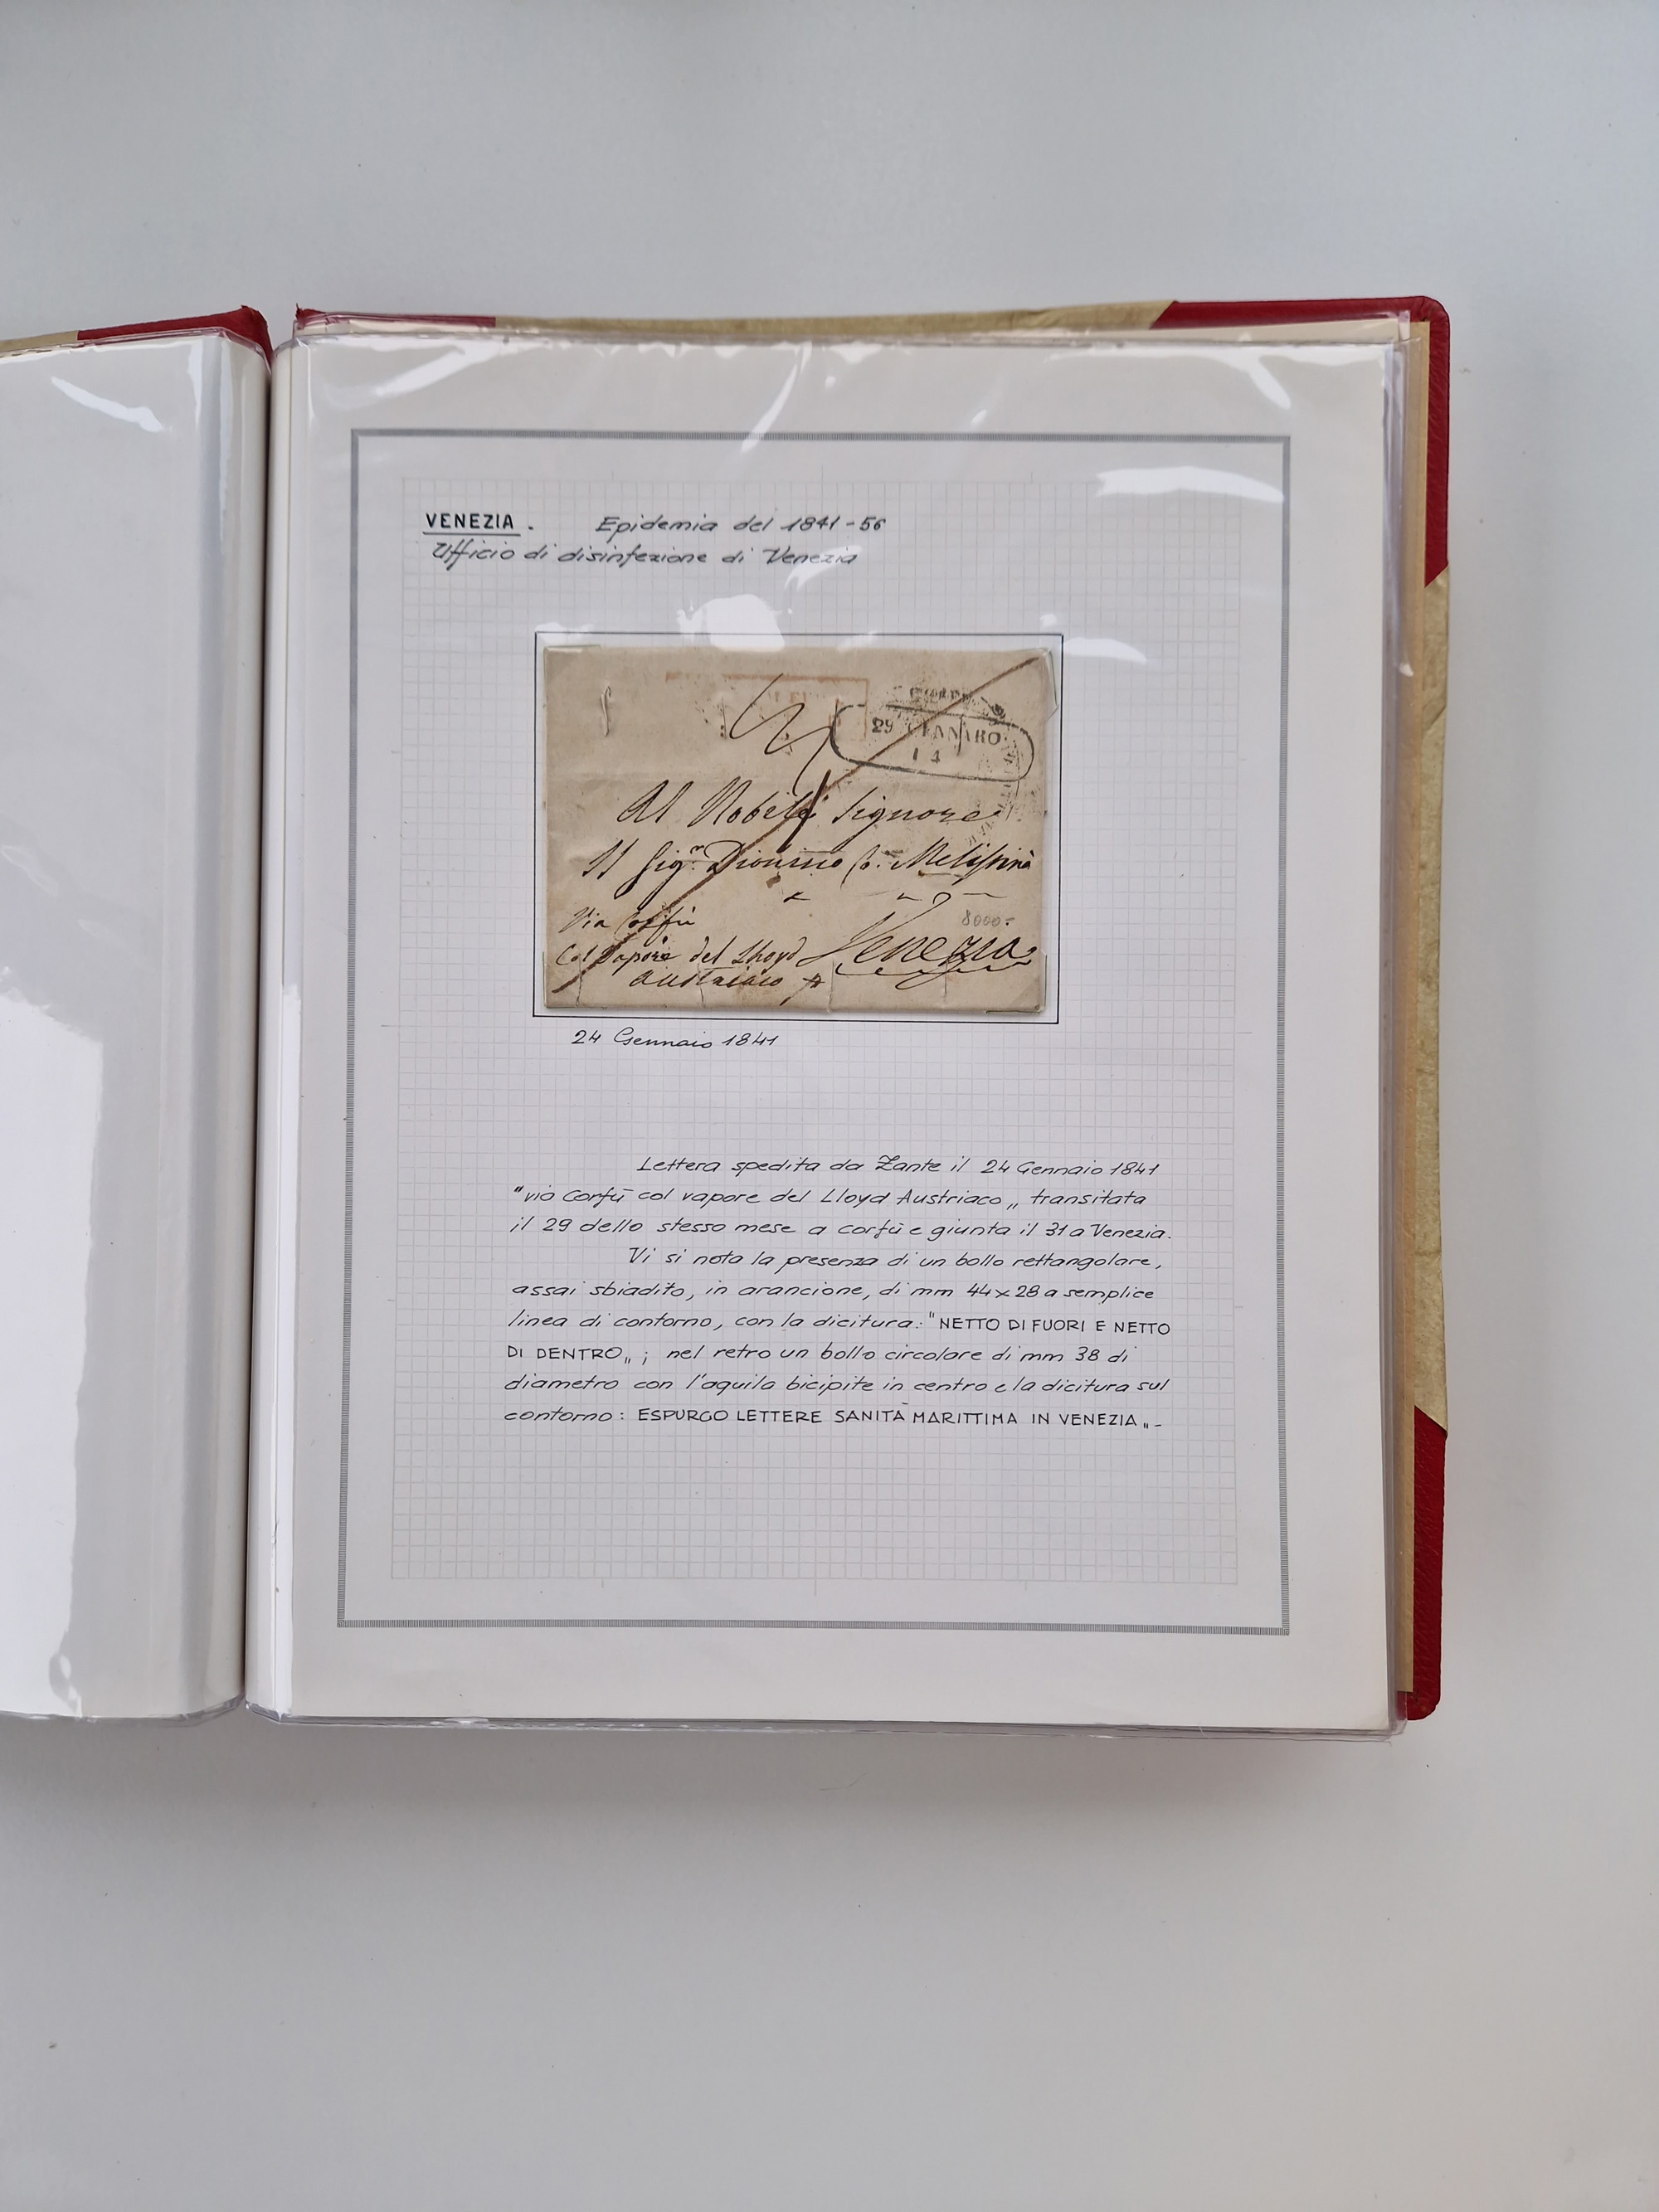 VENEZIA. Epidemia del 1841-56
Ufficio di disinfezione di Venezia
29 GENNARO
Al Nobile Signore
Il Sigr. Dionisio
Via Corfù Venezia
8000=
Col Vapore del Lloyd
Austriaco
24 Gennaio 1841
Lettera spedita da Zante il 24 Gennaio 1841
"via Corfù col vapore del Lloyd Austriaco„ transitata
il 29 dello stesso mese a Corfù e giunta il 31 a Venezia.
Vi si nota la presenza di un bollo rettangolare,
assai sbiadito, in arancione, di mm 44x28 a semplice
linea di contorno, con la dicitura: "NETTO DI FUORI E NETTO
DI DENTRO„; nel retro un bollo circolare di mm 38 di
diametro con l'aquila bicipite in centro e la dicitura sul
contorno: ESPURGO LETTERE SANITÀ MARITTIMA IN VENEZIA„-